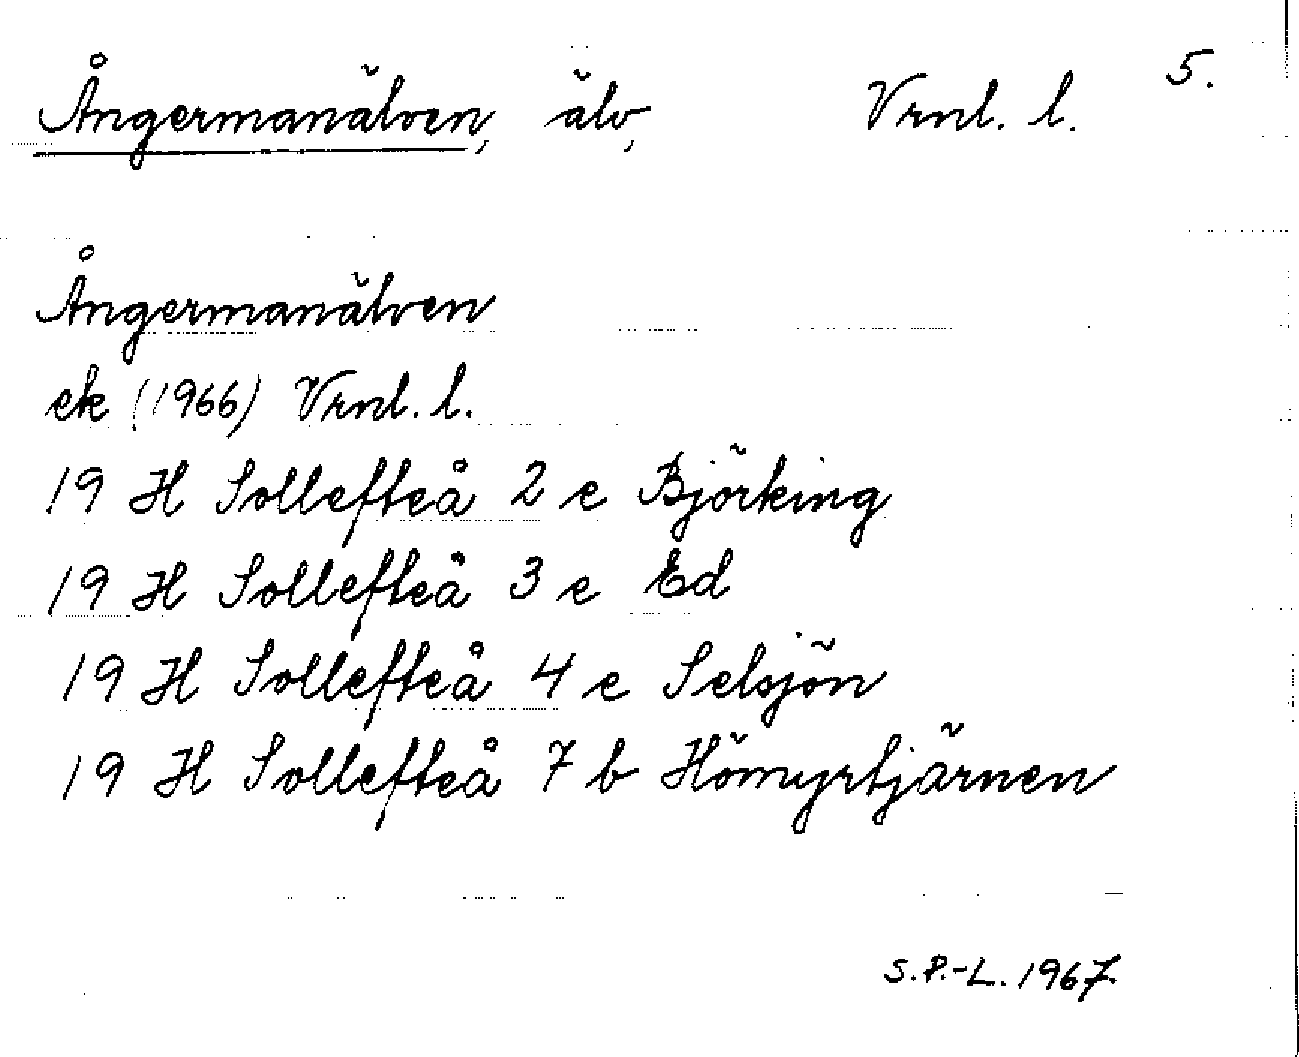 Ångermanälven, älv, Vrnl. l. 5.
Ångermanälven
ek (1966) Vrnl. l.
19 H Sollefteå 2 e Björking
19 H Sollefteå 3 e Ed
19 H Sollefteå 4 e Selsjön
19 H Sollefteå 7 b Hömyrtjärnen
S.P.-L. 1967.